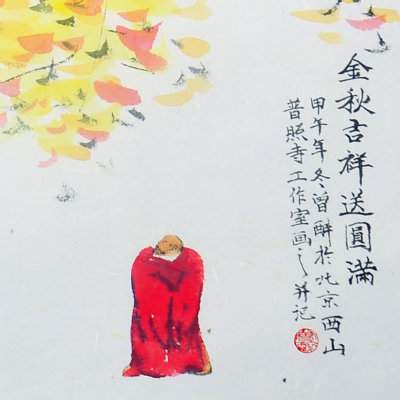 金秋吉祥送圓滿
甲午年冬曾醉於北京西山
普照寺工作室画之并记